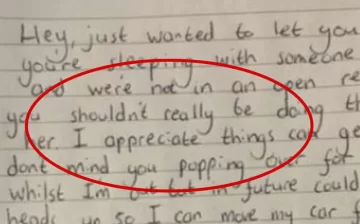 Hey, just wanted to let you
you're sleeping with someone
and were not in an open re
you shouldn't really be doing th
her. I appreciate things can ge
dont mind you popping over for
whilst Im out but in future could
heads up so I can move my car